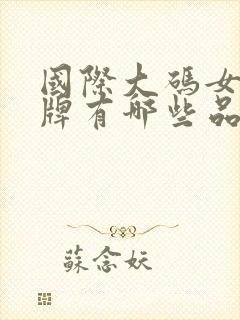 國際大碼女
牌有哪些品
蘇念妖